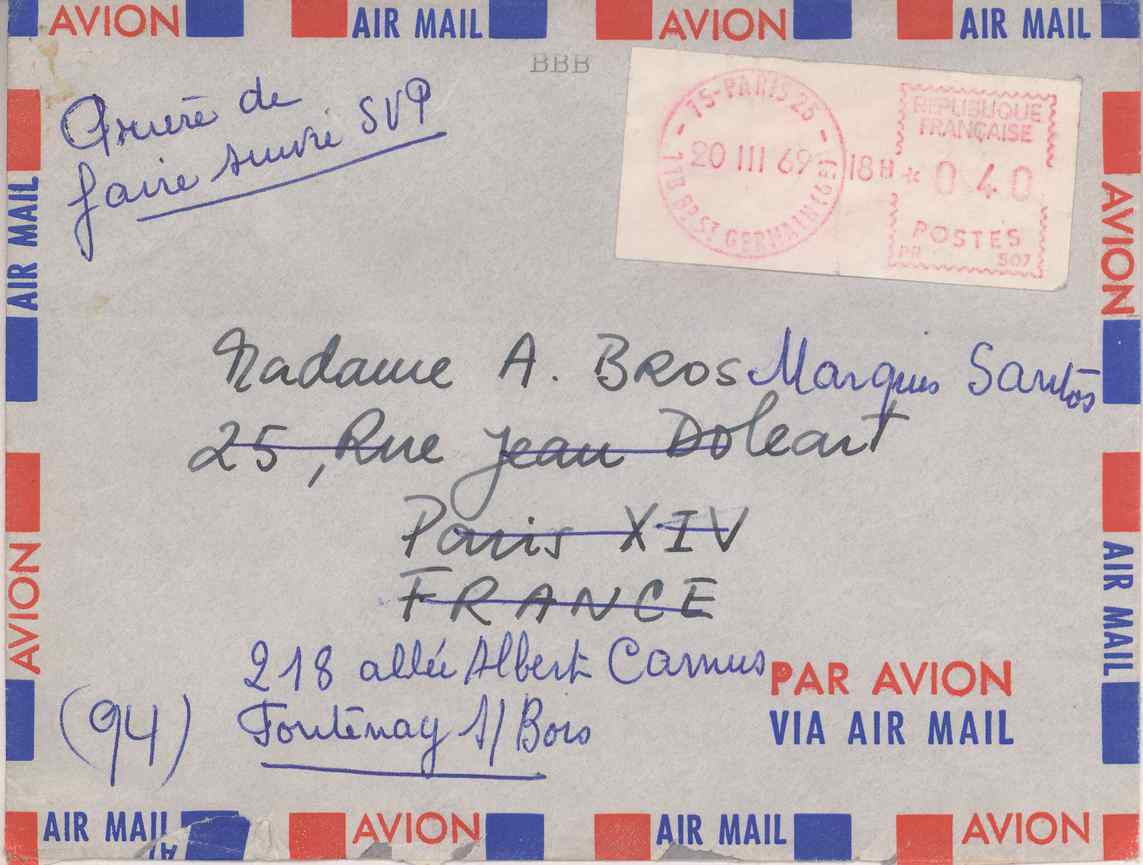 AVION AIR MAIL AVION AIR MAIL
BBB
Prière de
faire suivre SVP
75-PARIS 25
20 III 69
118 BD ST GERMAIN (6E)
18H
REPUBLIQUE
FRANÇAISE
* 0 40
POSTES
PR 507
AIR MAIL
AVION
AVION
AIR MAIL
Madame A. BROS Marquis Santos
25, Rue Jean Doleant
Paris XIV
FRANCE
218 allée Albert Camus
(94) Fontenay s/Bois
PAR AVION
VIA AIR MAIL
AIR MAIL AVION AIR MAIL AVION